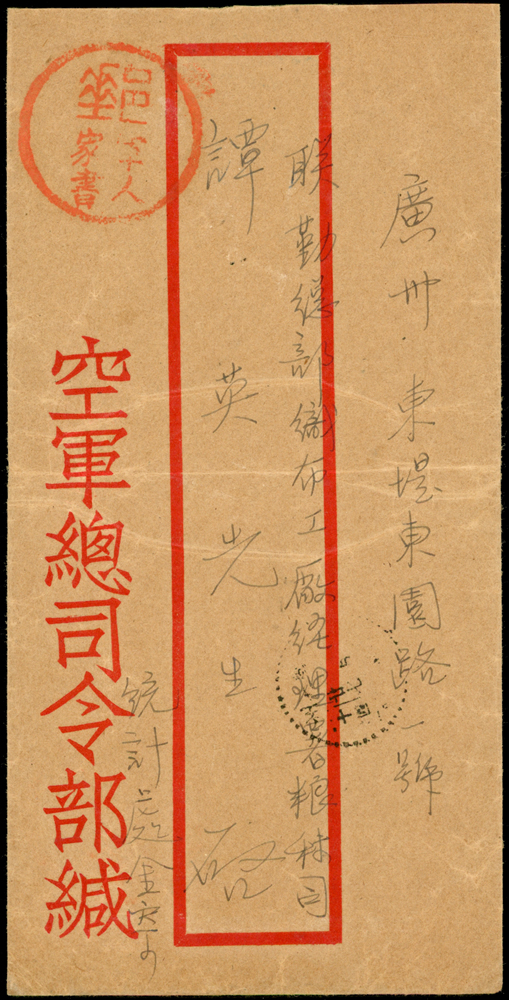 廣州東堤東園路一號
联勤總部織布工廠経理署粮秣司
譚英先生啟
空軍總司令部緘
統計處
軍人
家書